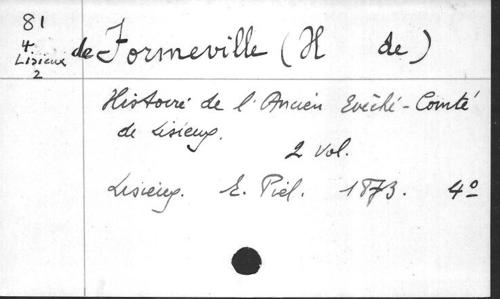 81
4.
Lisieux
2
de Formeville (H de)
Histoire de l'Ancien Evêché-Comté
de Lisieux.
2 vol.
Lisieux. E. Piel. 1873. 4º